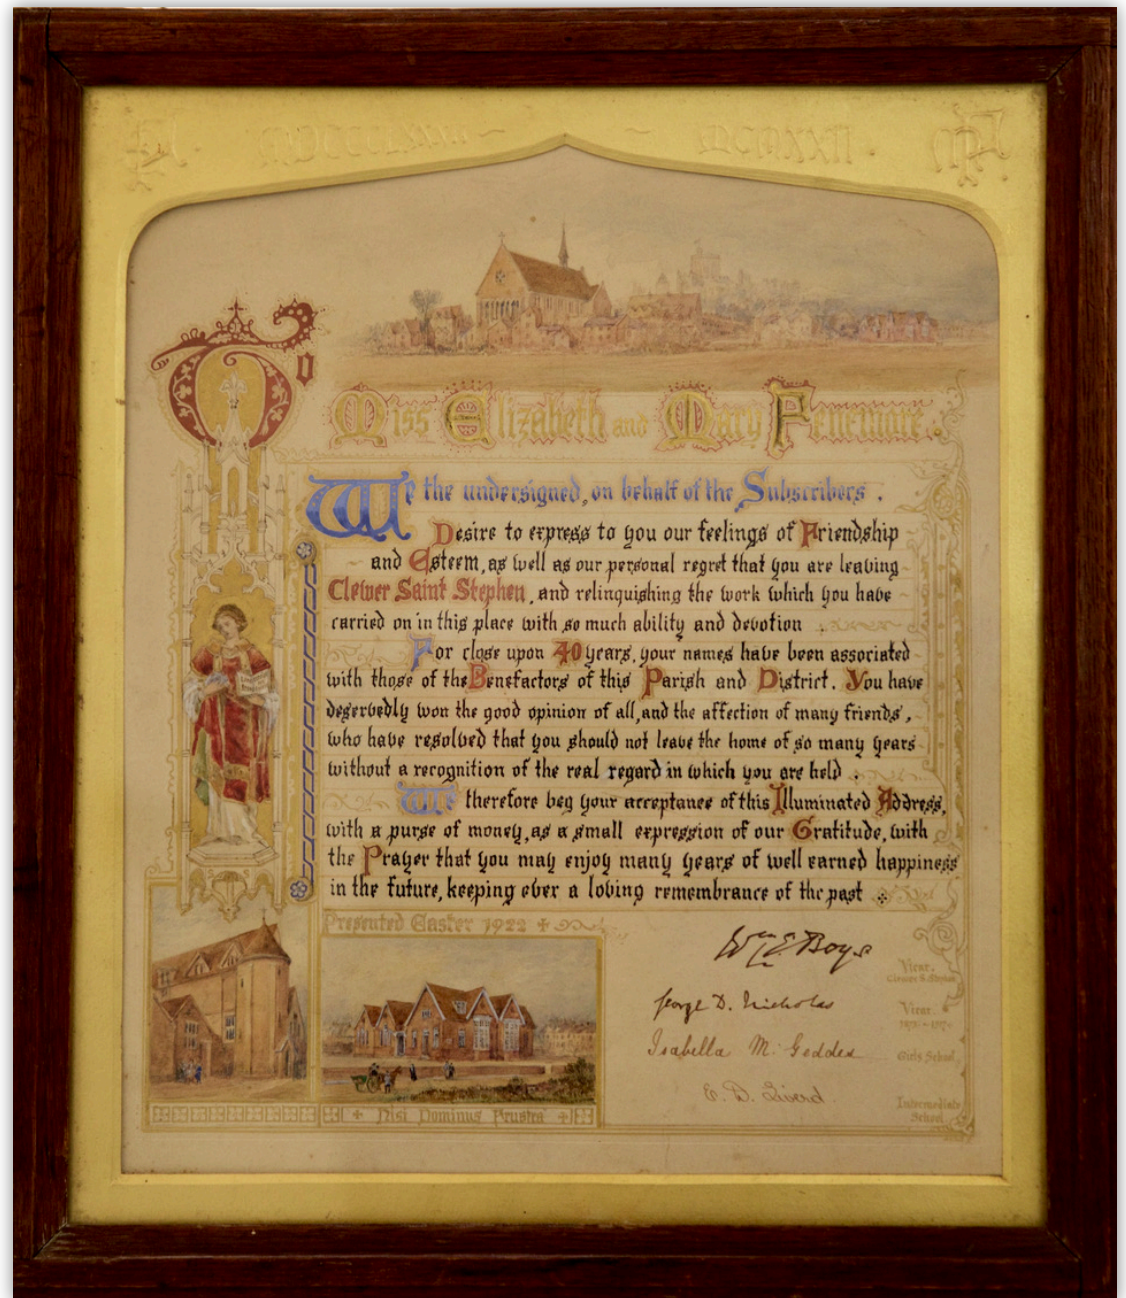 MDCCCLXXXIII ~ ~ MCMXXII
To
Miss Elizabeth and Mary Fenemore.
We the undersigned, on behalf of the Subscribers.
Desire to express to you our feelings of Friendship
and Esteem, as well as our personal regret that you are leaving
Clewer Saint Stephen, and relinquishing the work which you have
carried on in this place with so much ability and devotion
For close upon 40 years, your names have been associated
with those of the Benefactors of this Parish and District. You have
deservedly won the good opinion of all, and the affection of many friends,
who have resolved that you should not leave the home of so many years
without a recognition of the real regard in which you are held.
We therefore beg your acceptance of this Illuminated Address,
with a purse of money, as a small expression of our Gratitude, with
the Prayer that you may enjoy many years of well earned happiness
in the future, keeping ever a loving remembrance of the past
Presented Easter 1922
Wm E. Boys
Vicar.
Clewer S. Stephen
George D. Nicholas
Vicar.
Isabella M. Geddes
Girls School
E. D.
Intermediate
School
Nisi Dominus Frustra